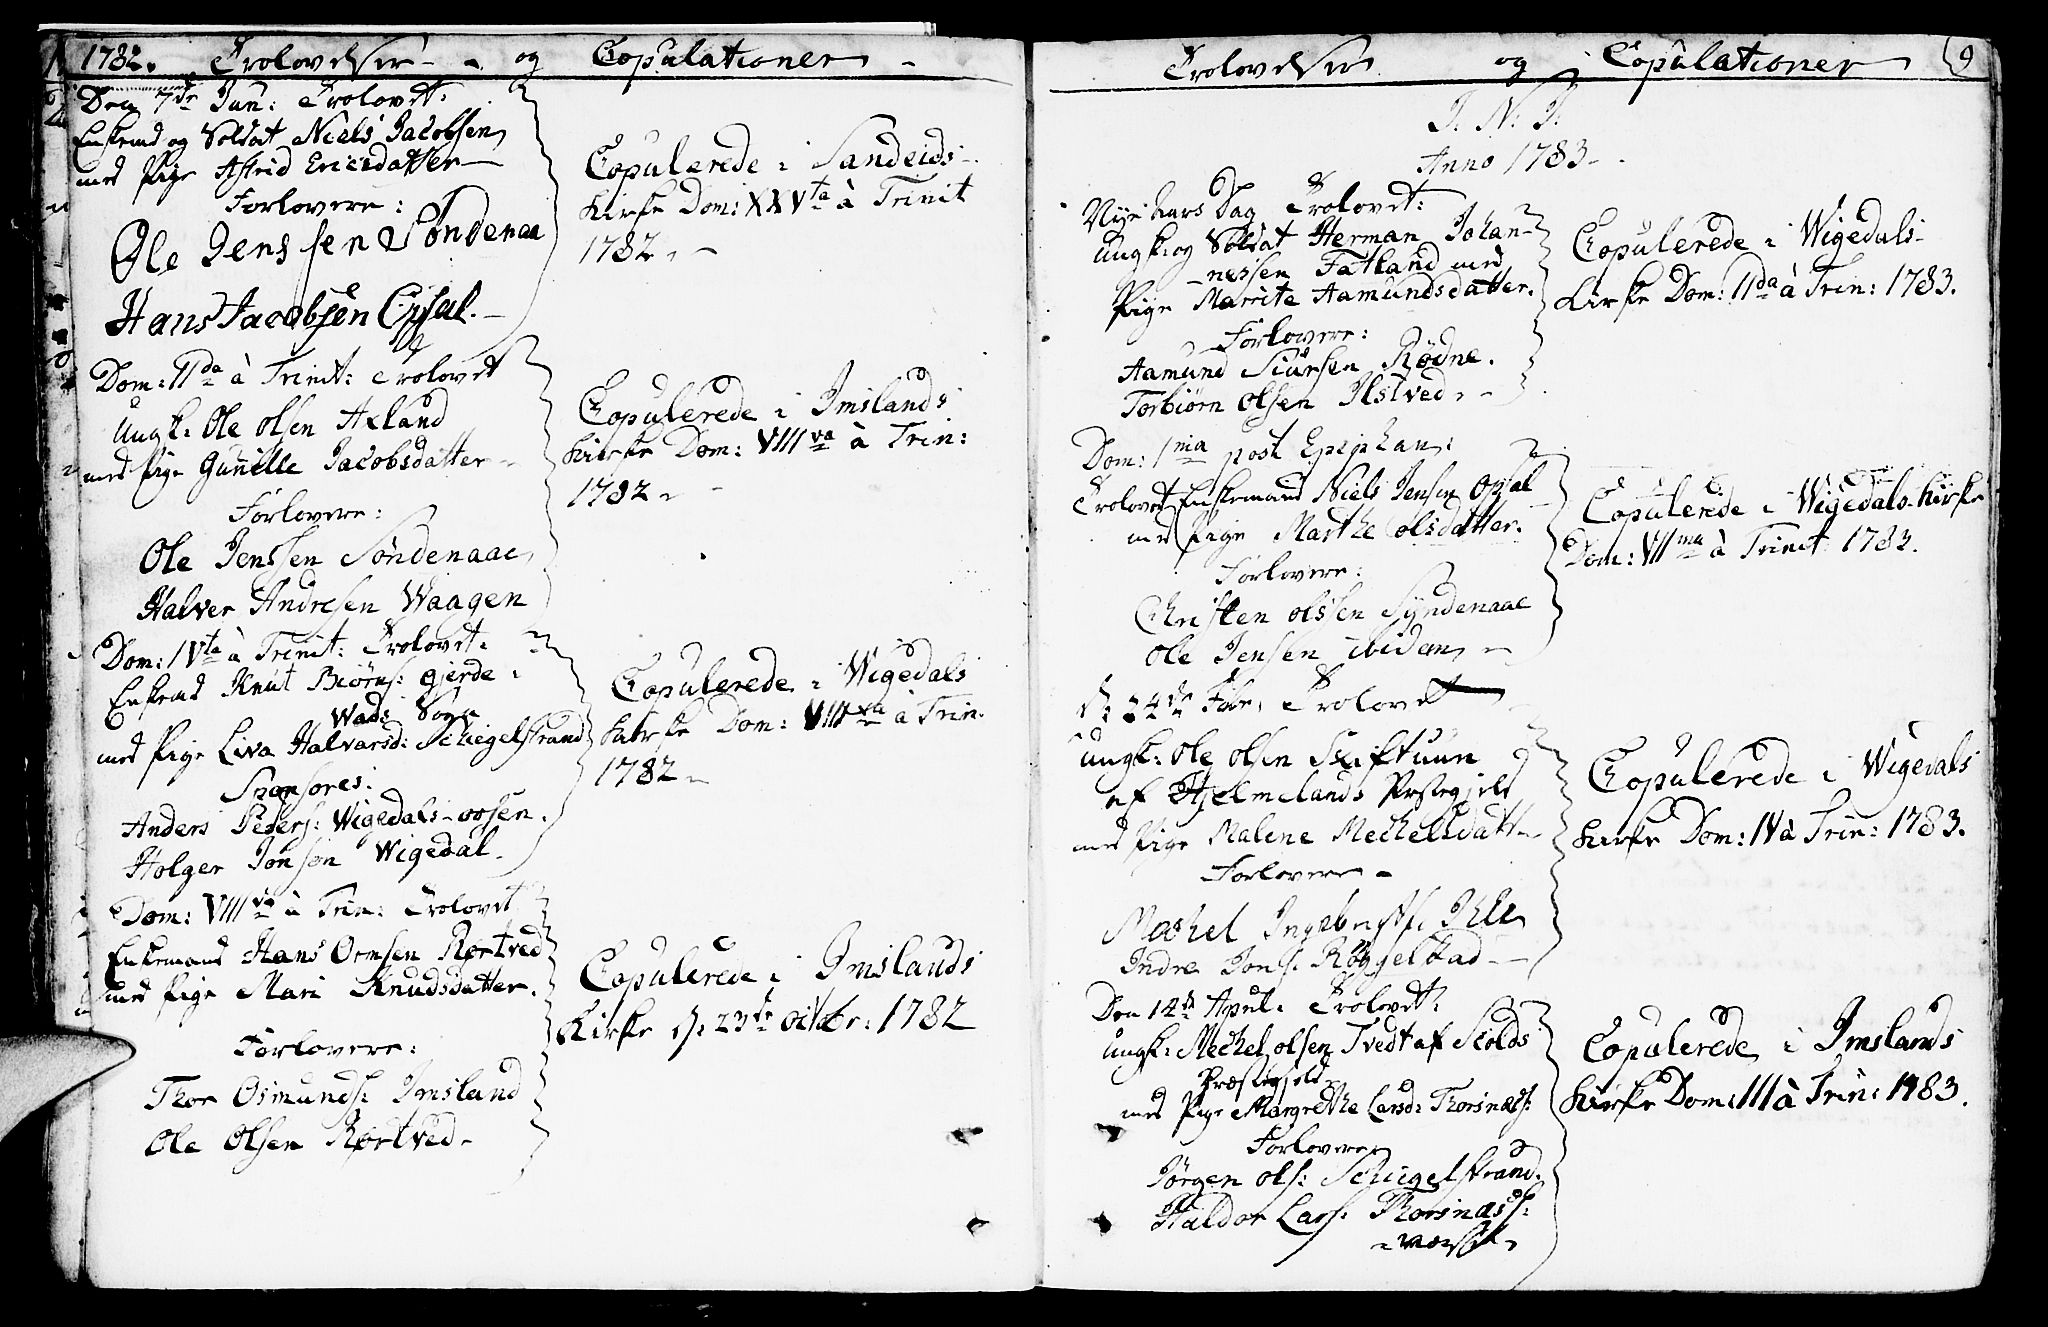 1782. Trolovelser - og Copulationer -
Den 7de Jun: Trolovet:
Enkemd og Soldat Niels Jacobsen
med Pige Astrid Ericsdatter
Forlovere:
Ole Jenssen Søndenaa
Hans Jacobsen Opsal.
Copulerede i Sandeids
Kirke Dom: XXVta à Trinit
1782.
Dom: IIda à Trinit: Trolovet
Ungk: Ole Olsen Axland
med Pige Gunille Jacobsdatter
Forlovere:
Ole Jenssen Søndenaae
Halver Andresen Waagen
Copulerede i Imslands
Kirke Dom: VIIIva à Trin:
1782.
Dom: IVta à Trinit: Trolovet.
Enkemd Knut Biørns: Gjerde
Wads Sogn
med Pige Liva Halvarsd: Schiegelstrand
Sponsores:
Anders Peders: Wigedals-oosen.
Holger Jonson Wigedal.
Copulerede i Wigedals
Kirke Dom: VIIIva à Trin.
1782.
Dom: VIIIva à Trin: Trolovet
Enkemand Hans Ormsen Rørtved
med Pige Mari Knudsdatter.
Forlovere:
Thor Osmunds: Imsland
Ole Olsen Rørtved
Copulerede i Imslands
Kirke d: 23de Octobr: 1782
Trolovelser og Copulationer 9
I. N. J.
Anno 1783
Nye Aars Dag Trolovet:
Ungk. og Soldat Herman Johan-
nessen Fatland med
Pige Marrite Aamundsdatter.
Forlovere:
Aamund Siursen Rødne.
Torbiørn Olsen Ilstved.
Copulerede i Wigedals
Kirke Dom: IIda à Trin: 1783.
Dom: 1ma post Epiphan:
Trolovet Enkemand Niels Jensen Opsal
med Pige Marthe Olsdatter.
Forlovere:
Christen Olssen Syndenaae
Ole Jensen ibidem
Copulerede i Wigedals Kirke
Dom: VIIma à Trinit 1783.
d: 24de Febr. Trolovet
Ungk: Ole Olsen Skiftuun
af Hjelmelands Præstegjeld
med Pige Malene Mechelsdatt
Forlovere
Mechel Ingebrigts: Ihle
Indre Jons: Røggelstad
Copulerede i Wigedals
Kirke Dom: IV à Trin: 1783.
Den 14de April: Trolovet:
Ungk: Mechel Olsen Tvedt af Skiolds
Præstegjeld
med Pige Margrethe Larsd: Thorsnæs:
Forlovere
Jørgen Ols: Schiegelstrand.
Haldor Lars: Thorsnæs:
Copulerede i Imslands
Kirke Dom: III à Trin: 1783.